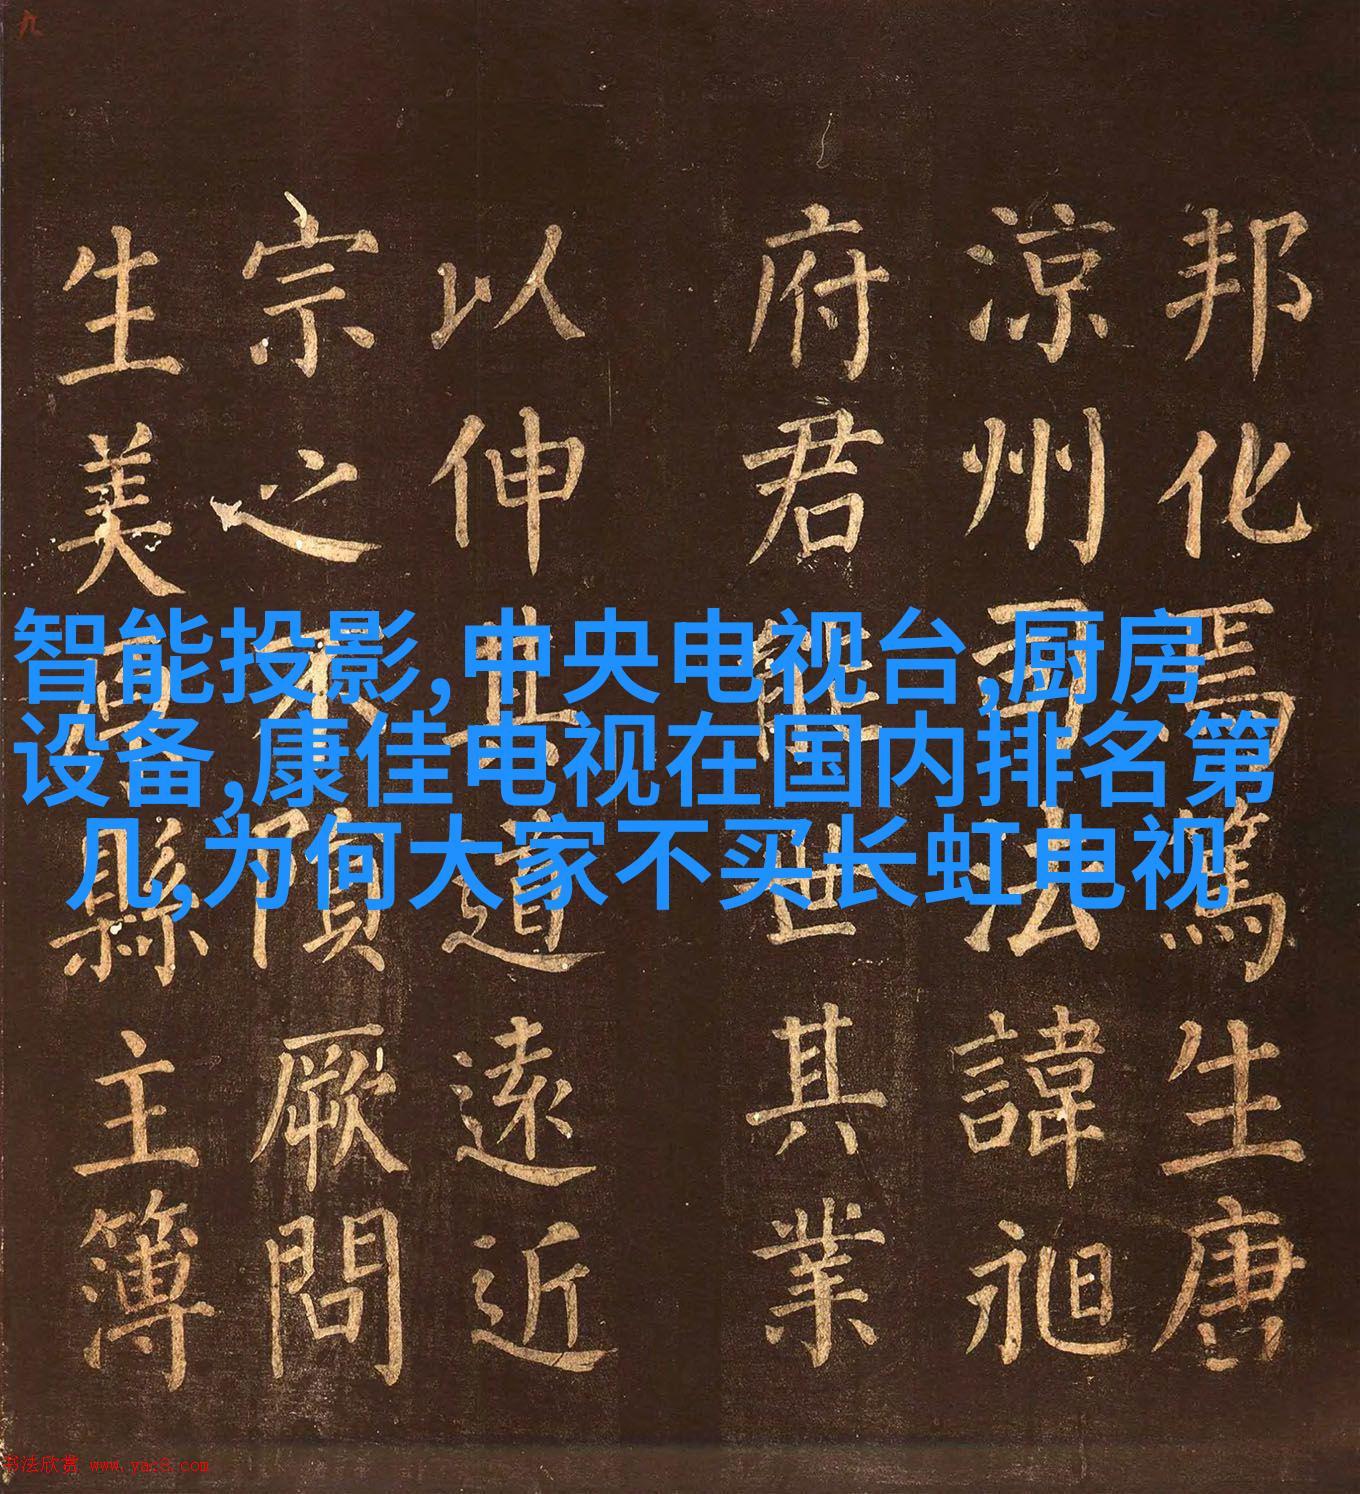 九
智能投影,中央电视台,厨房
设备,康佳电视在国内排名第
几,为何大家不买长虹电视
邦化焉篤生唐
涼州司法諱昶
府君能世其業
以伸其道遠近
宗之不隕厥問
生美原縣主簿
书法欣赏 www.yac8.com